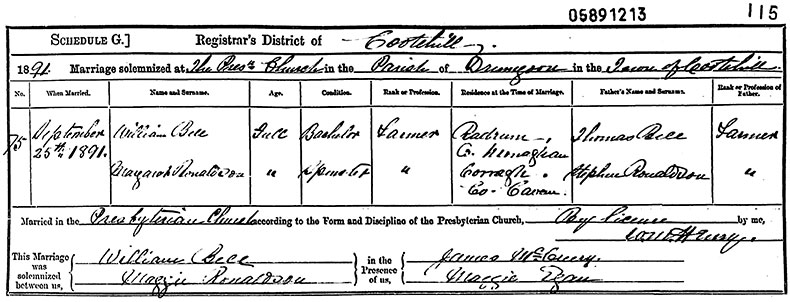 05891213 115
SCHEDULE G.] Registrar's District of Cootehill
1891. Marriage solemnized at The Presn Church in the Parish of Drumgoon in the Town of Cootehill
No. When Married. Name and Surname. Age. Condition. Rank or Profession. Residence at the Time of Marriage. Father's Name and Surname. Rank or Profession of Father.
75 September 25th 1891. William Bell Full Bachelor Farmer Radrum, Co. Monaghan Thomas Bell Farmer
Margaret Ronaldson " Spinster " Corragh, Co. Cavan. Stephen Ronaldson "
Married in the Presbyterian Church according to the Form and Discipline of the Presbyterian Church, By license by me,
Henry.
This Marriage was solemnized between us, William Bell in the Presence of us, James McCreery
Maggie Ronaldson Maggie